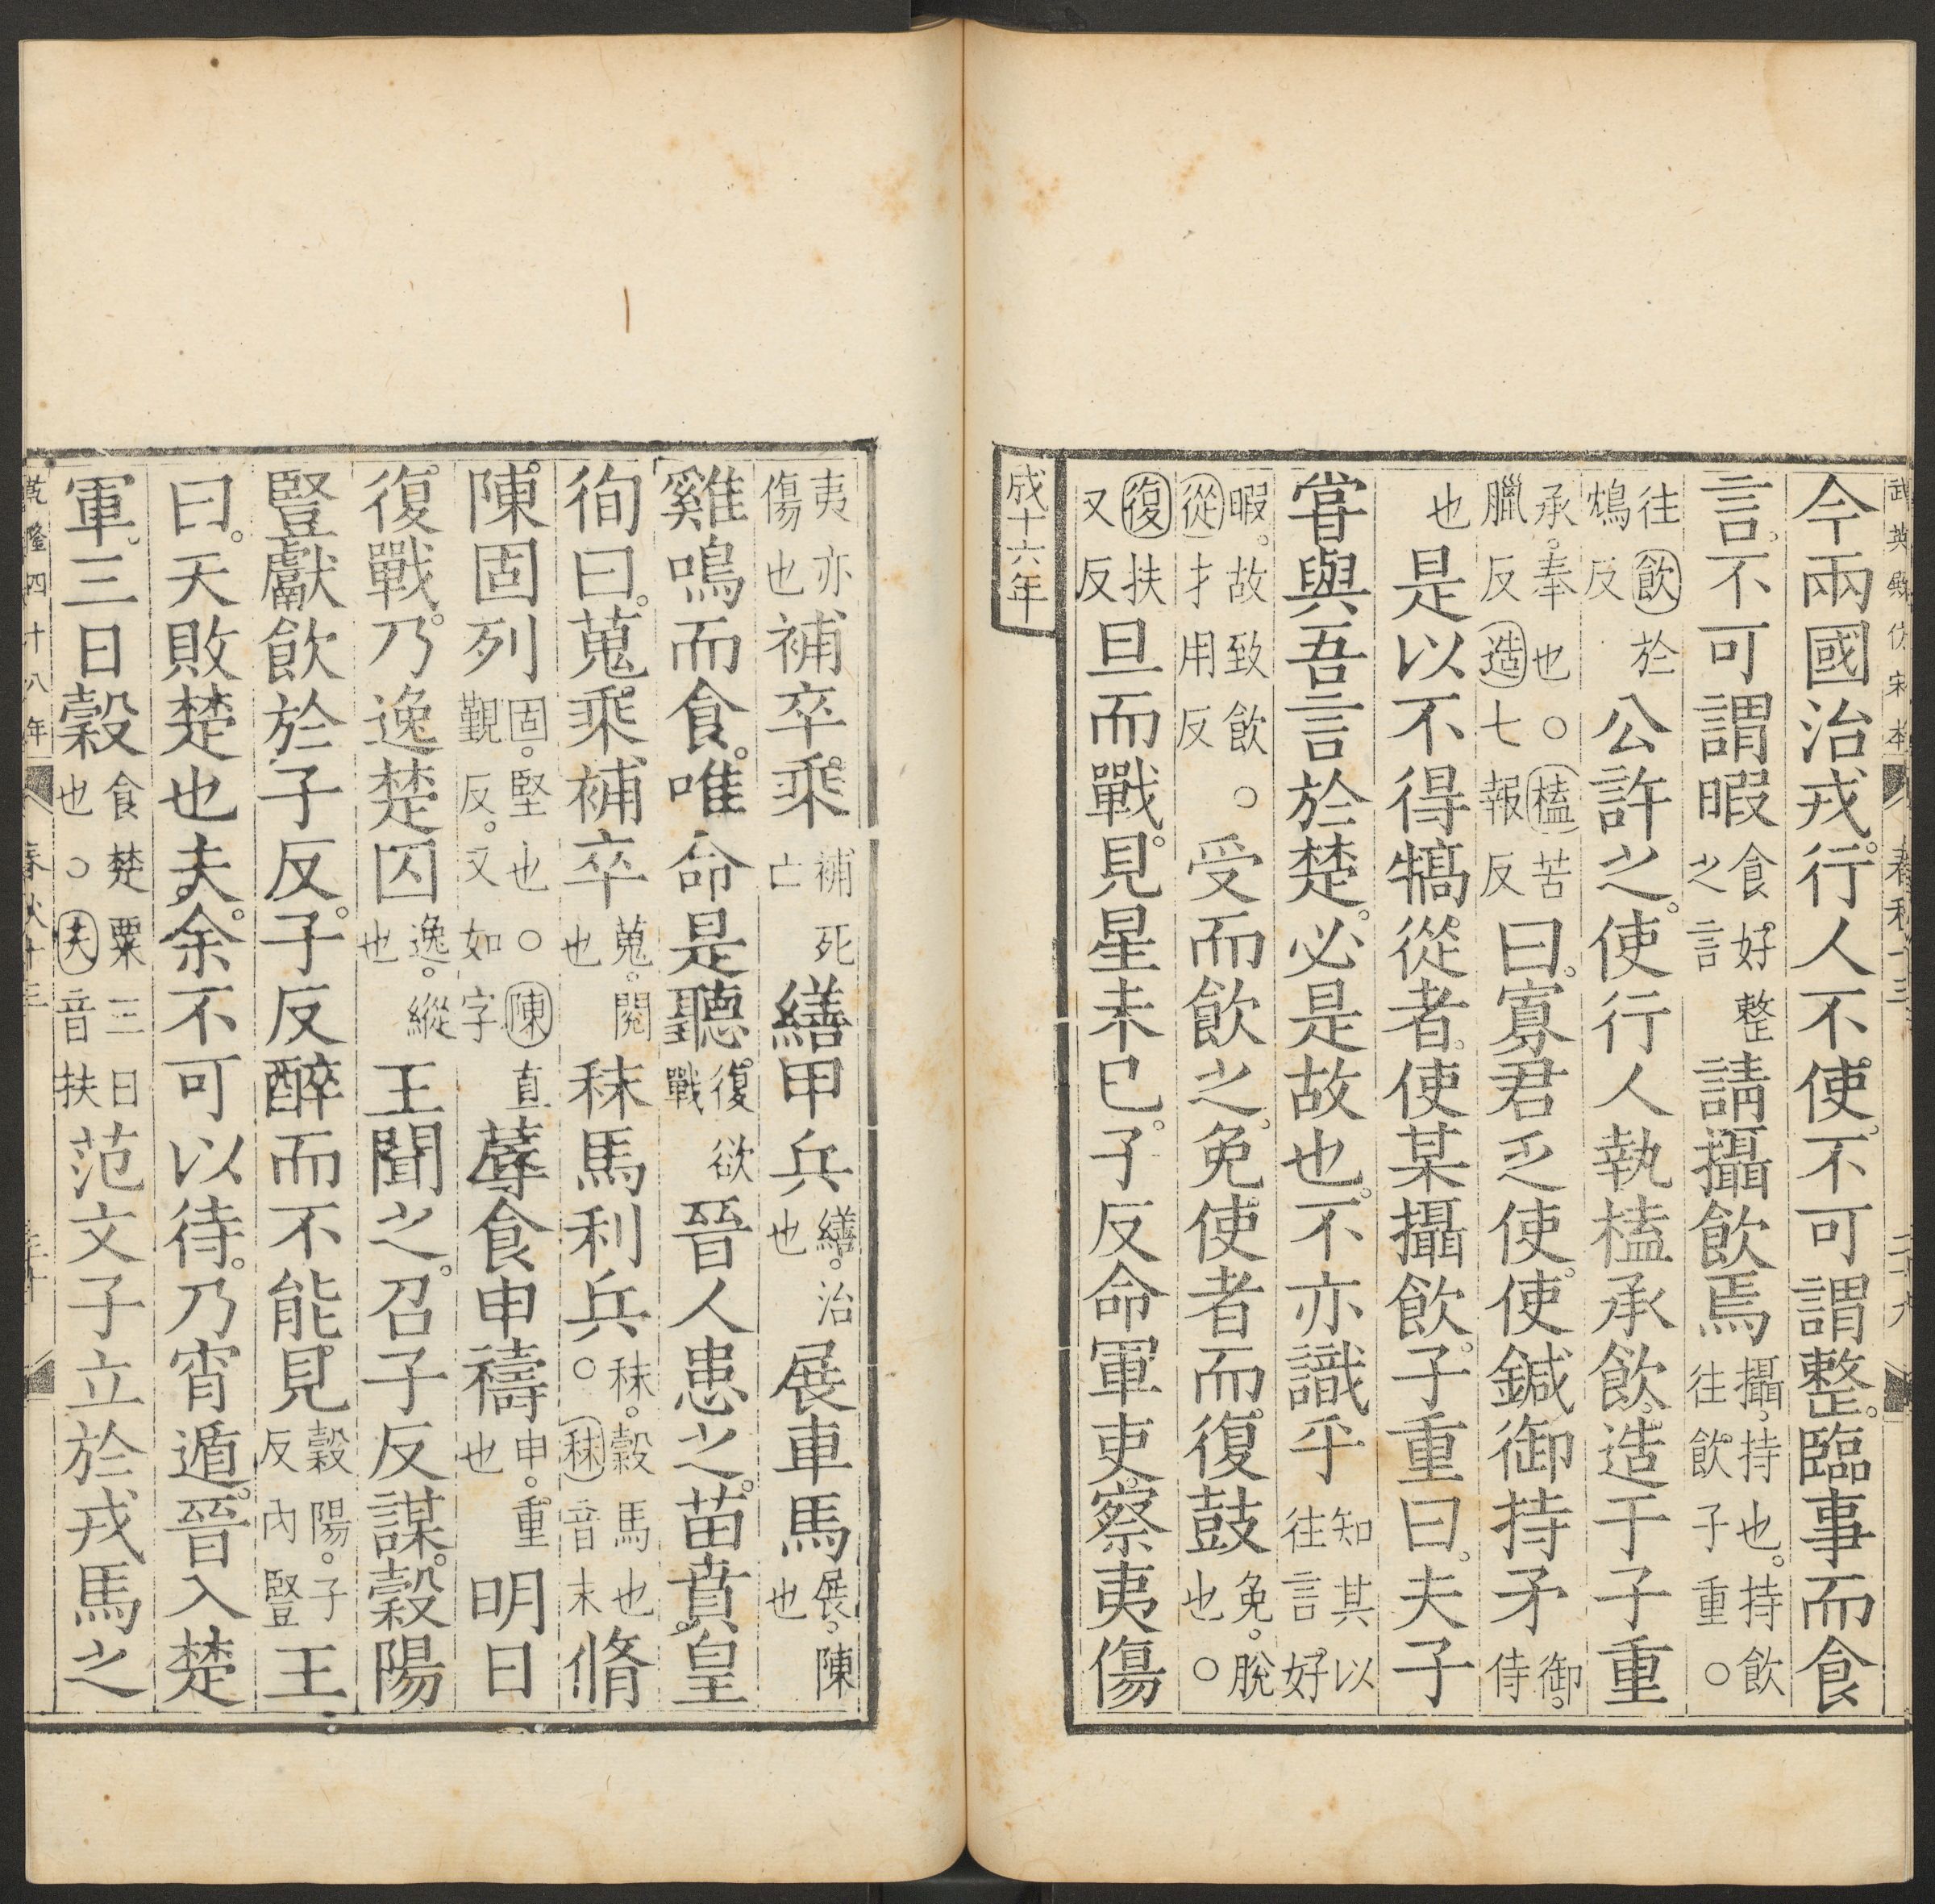 武英殿仿宋本 春秋十三 二十九
今兩國治戎。行人不使。不可謂整。臨事而食
言。不可謂暇食好整之言請攝飲焉攝。持也。持飲往飲子重○
往飲於鴆反公許之。使行人執榼承飲。造于子重
承。奉也○榼苦臘反造七報反曰。寡君乏使。使鍼御持矛御。侍
也是以不得犒從者。使某攝飲。子重曰。夫子
嘗與吾言於楚。必是故也。不亦識乎知其以往言好
暇。故致飲。○從才用反受而飲之。免使者而復鼓免。脫也○
復扶又反旦而戰。見星未已。子反命軍吏。察夷傷
成十六年
夷亦傷也補卒乘。補死亡繕甲兵繕。治也展車馬展。陳也
雞鳴而食。唯命是聽。復欲戰晉人患之。苗賁皇
徇曰。蒐乘補卒蒐。閱也秣馬利兵。秣。穀馬也○秣音末脩
陳固列固。堅也○陳直覲反。又如字蓐食申禱申。重也明日
復戰。乃逸楚囚逸。縱也王聞之。召子反謀。穀陽
豎獻飲於子反。子反醉而不能見穀陽。子反內豎王
曰。天敗楚也夫。余不可以待。乃宵遁。晉入楚
軍。三日穀食楚粟三日也○夫音扶范文子立於戎馬之
乾隆四十八年 春秋十三 三十